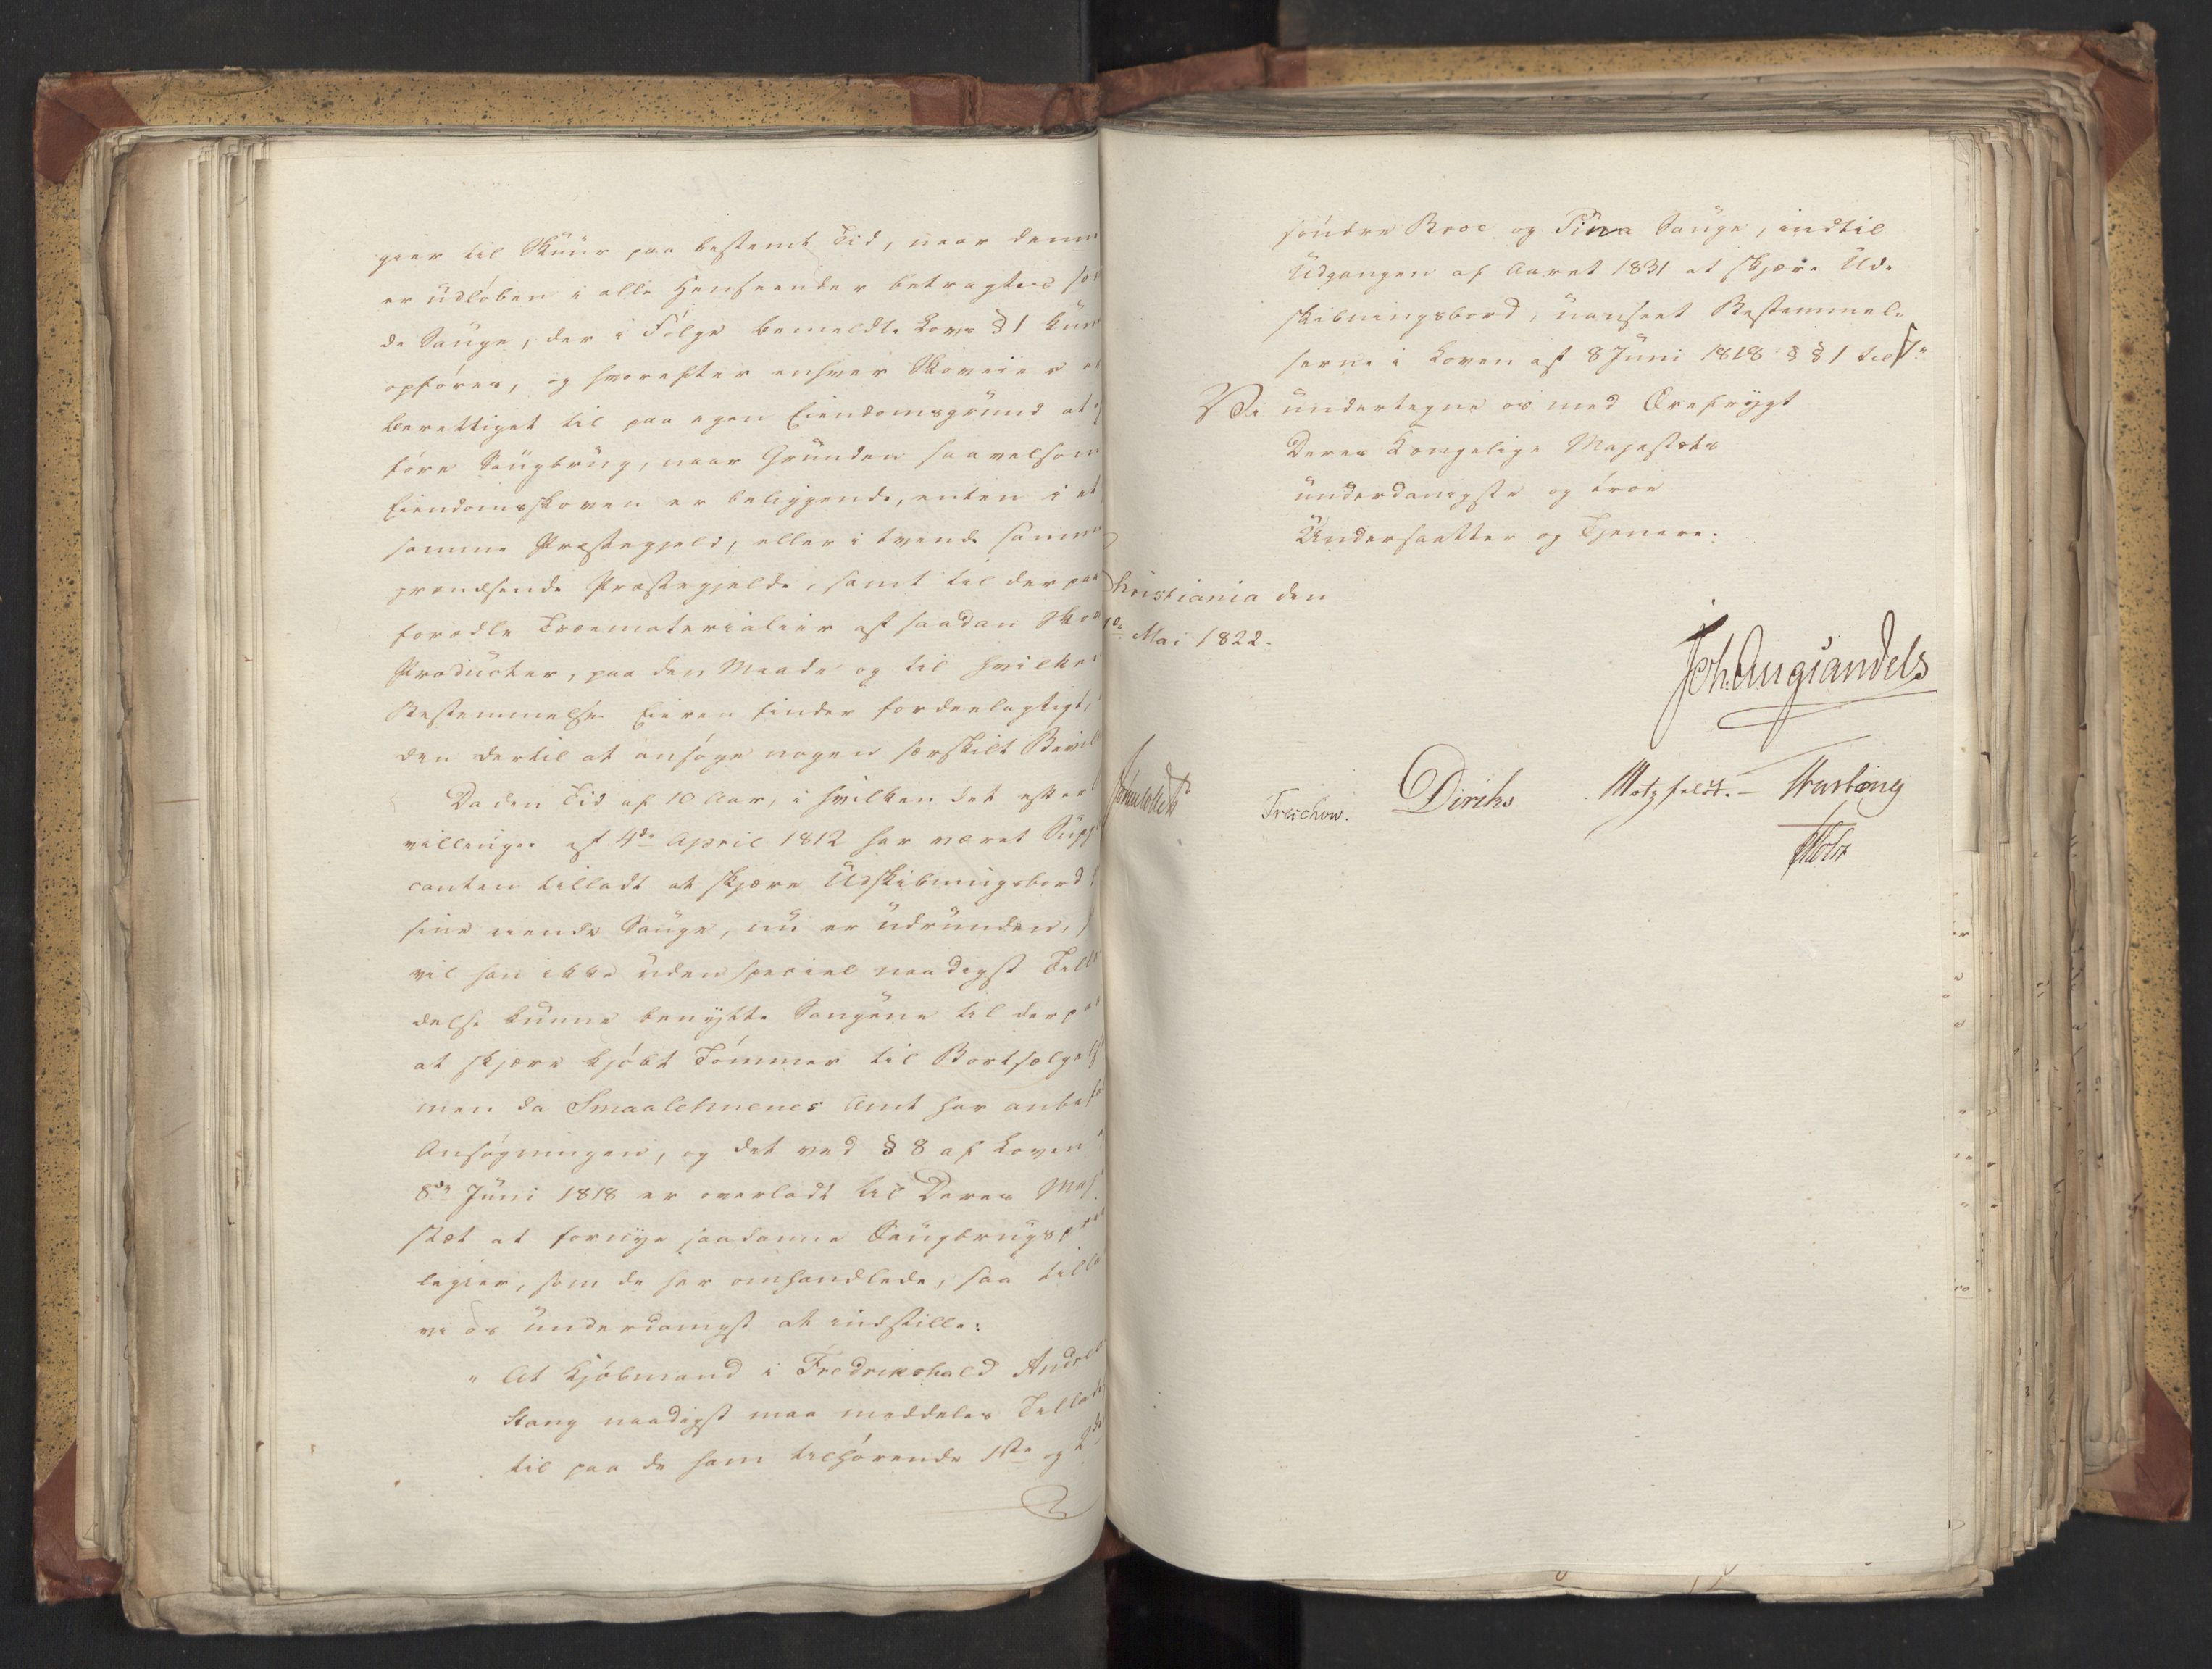 gier til Skuur paa bestemt Tid, naar denne
er udløben i alle Henseender betragtes som
de Sauge, der i Følge bemeldte Lovs § 1 kun
opføres, og hvorefter enhver Skoveier er
berettiget til paa egen Eiendomsgrund at
føre Saugbrug, naar Grunden saavelsom
Eiendomsskoven er beliggende, enten i et
samme Præstegjeld, eller i tvende sammen
grændsende Præstegjelde, samt til der paa
forædle Træematerialier af saadan Skov
Producter, paa den Maade og til hvilken
Bestemmelse Eieren finder fordeelagtigt,
den dertil at ansøge nogen særskilt Bevil
Da den Tid af 10 Aar, i hvilken det efter
villingen af 4de April 1812 har været Suppl
canten tilladt at skjære Udskibningsbord
sine eiende Sauge, nu er udrunden,
vil han ikke uden speciel naadigst Tilla
delse kunne benytte Saugene til derpaa
at skjære kjøbt Tømmer til Bortsælgelse
men da Smaalehnenes Amt har anbefa
Ansøgningen, og det ved § 8 af Loven
8de Juni 1818 er overladt til Deres Maj
stæt at fornye saadanne Saugbrugspri
legier, som de her omhandlede, saa tilla
vi os underdanigst at indstille:
" At Kjøbmand i Fredrikshald
Stang naadigst maa meddeles Tillade
til paa de ham tilhørende 1ste og 2de
søndre Broe og Tina Sauge, indtil
Udgangen af Aaret 1831 at skjære Ud-
skibningsbord, uanseet Bestemmel-
serne i Loven af 8 Juni 1818 §§ 1 til 7"
Vi undertegne os med Ærefrygt
Deres Kongelige Majestæts
underdanigste og troe
Undersaatter og Tjenere.
Christiania den
Mai 1822.
Joh. Aug Sandels
Sommerhielm
Treschow. Diriks Motzfeldt. Krefting
Holst